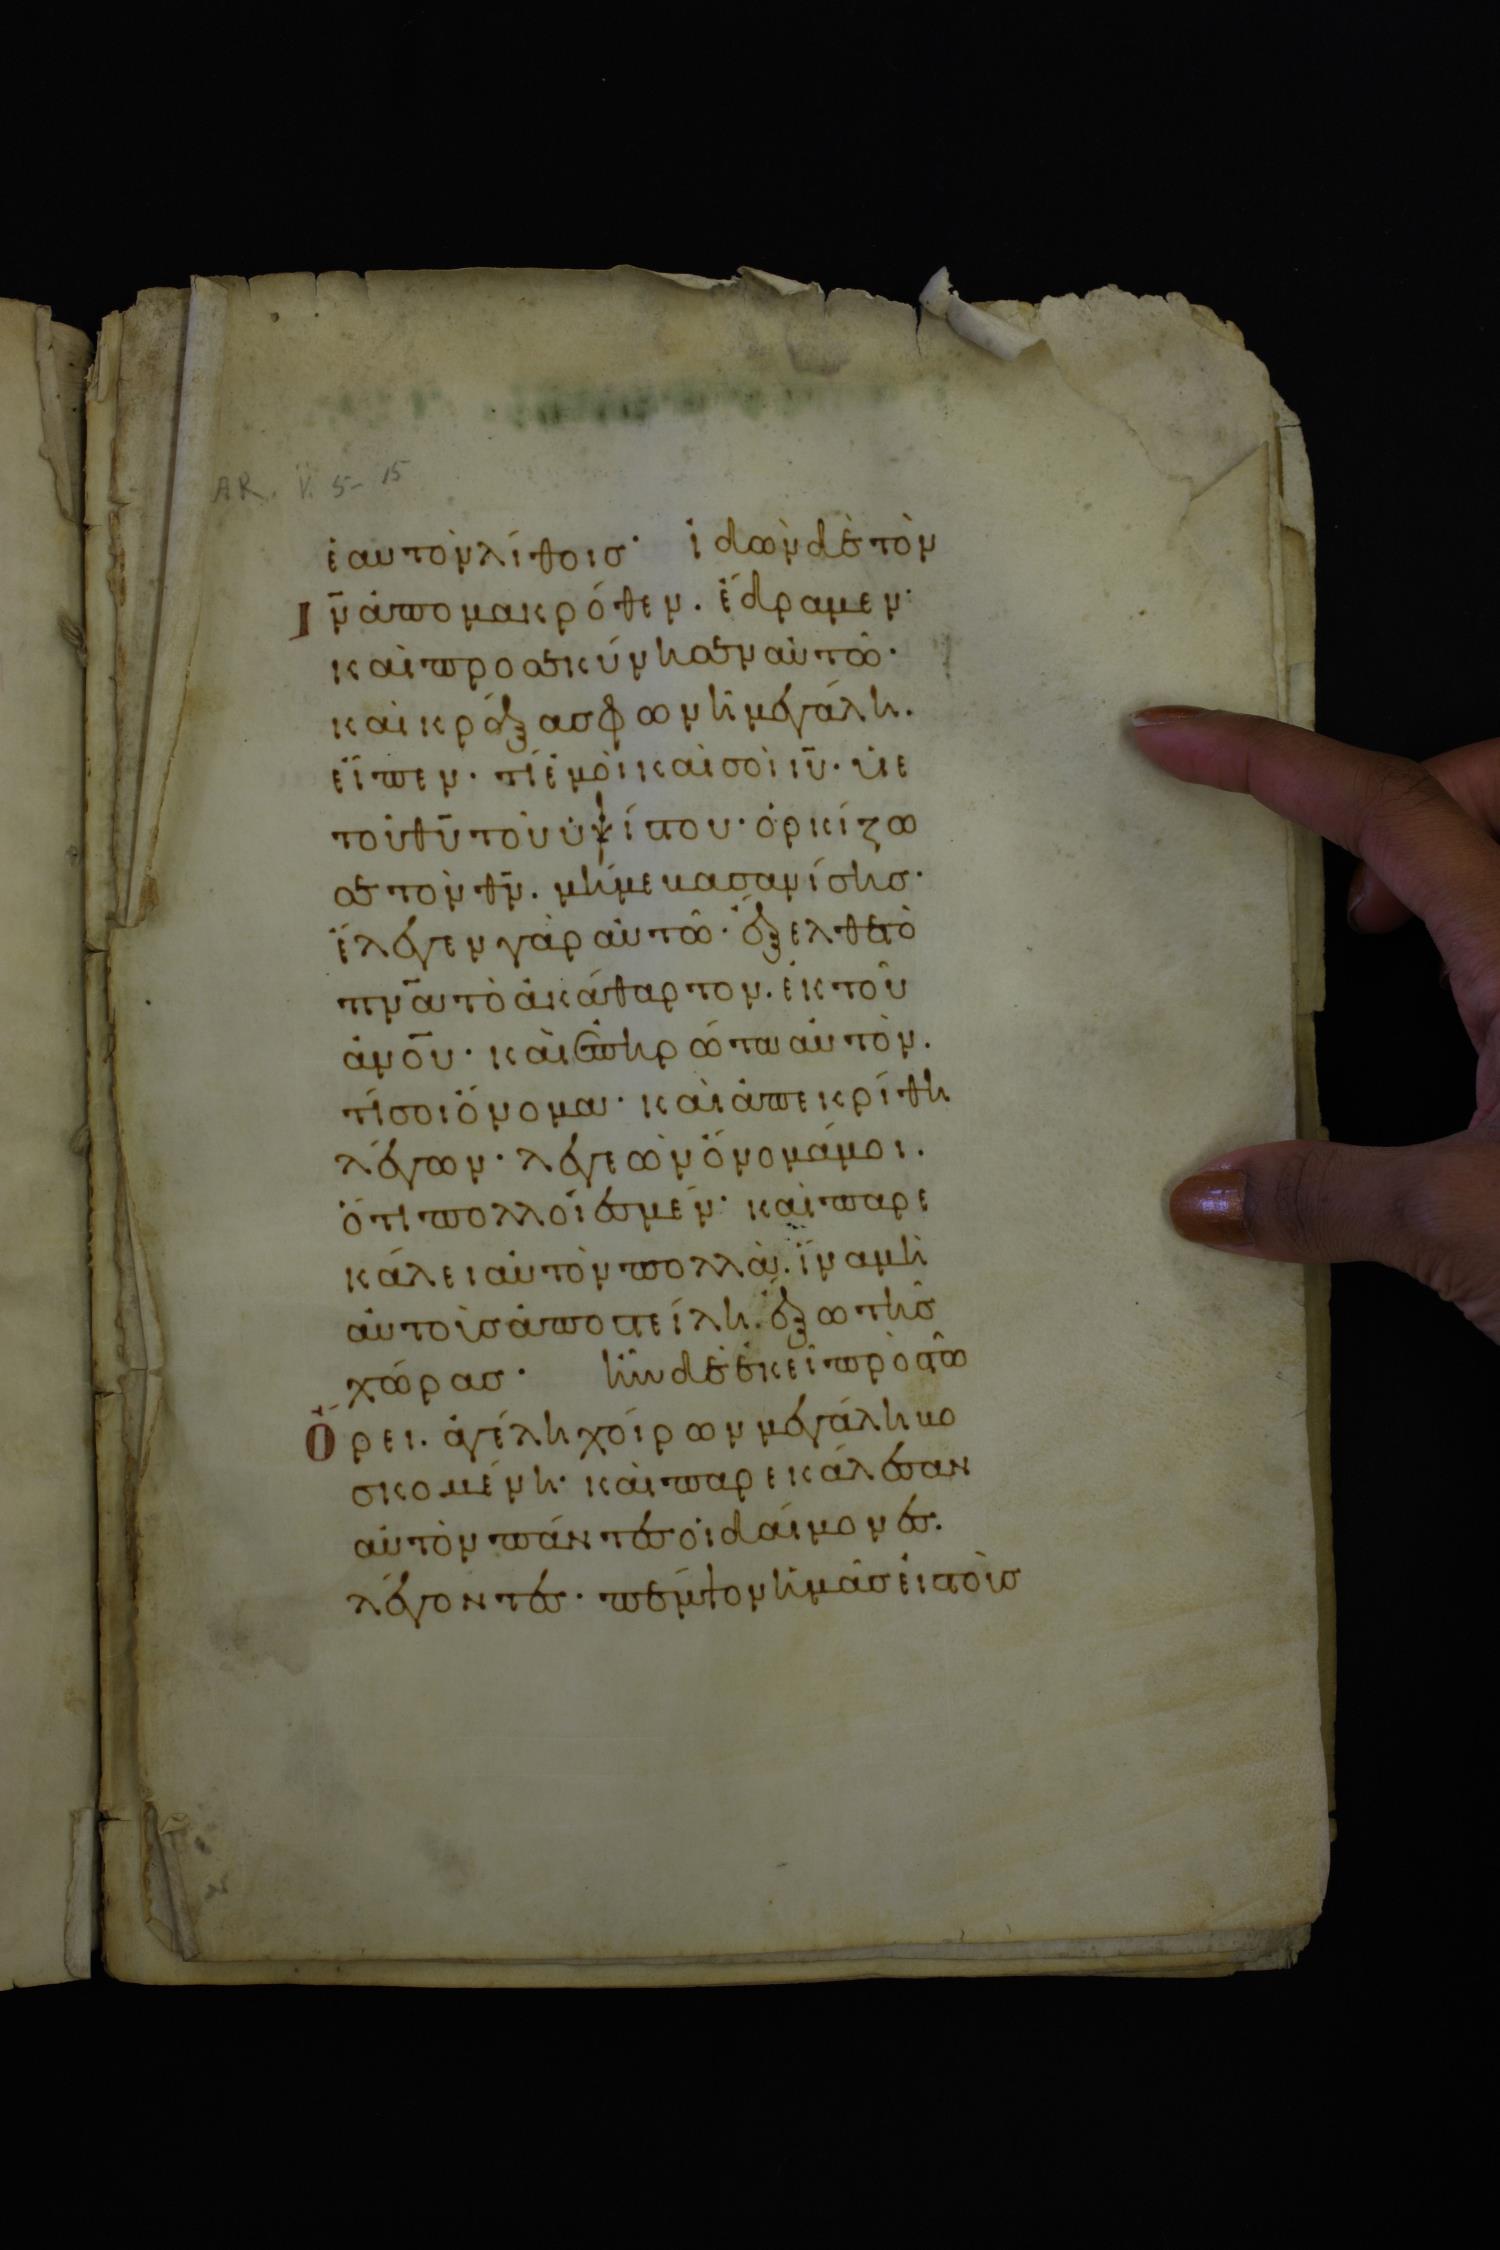 AR. V. 5-15
ἑαυτὸν λίθοισ· ἰδὼν δὲ τὸν
Ιν̅ ἀπὸ μακρόθεν. ἔδραμεν·
καὶ προσεκύνησεν αὐτῶ·
καὶ κράξασ φωνῆ μεγάλη.
εἶπεν· τί ἐμοὶ καὶ σοὶ ιυ̅· υἱὲ
τοῦ θυ̅ τοῦ ὑψίστου· ὁρκίζω
σε τὸν θν̅. μή με βασανίσησ·
ἔλεγεν γὰρ αὐτῶ· ἔξελθε τὸ
πνα̅ τὸ ἀκάθαρτον. ἐκ τοῦ
ἀνου̅· καὶ ἐπηρώτα αὐτὸν.
τί σοι ὄνομα· καὶ ἀπεκρίθη
λέγων· λεγεὼν ὄνομά μοι.
ὅτι πολλοί ἐσμεν· καὶ παρε
κάλει αὐτὸν πολλὰ. ἵνα μὴ
αὐτοὺσ ἀποστείλη. ἔξω τῆσ
χώρασ· ἦν δὲ ἐκεῖ πρὸσ τῶ
Ὄρει. ἀγέλη χοίρων μεγάλη βο
σκομένη· καὶ παρεκάλεσαν
αὐτὸν πάντεσ οἱ δαίμονεσ.
λέγοντεσ· πέμψον ἡμᾶσ εἰσ τοὺσ